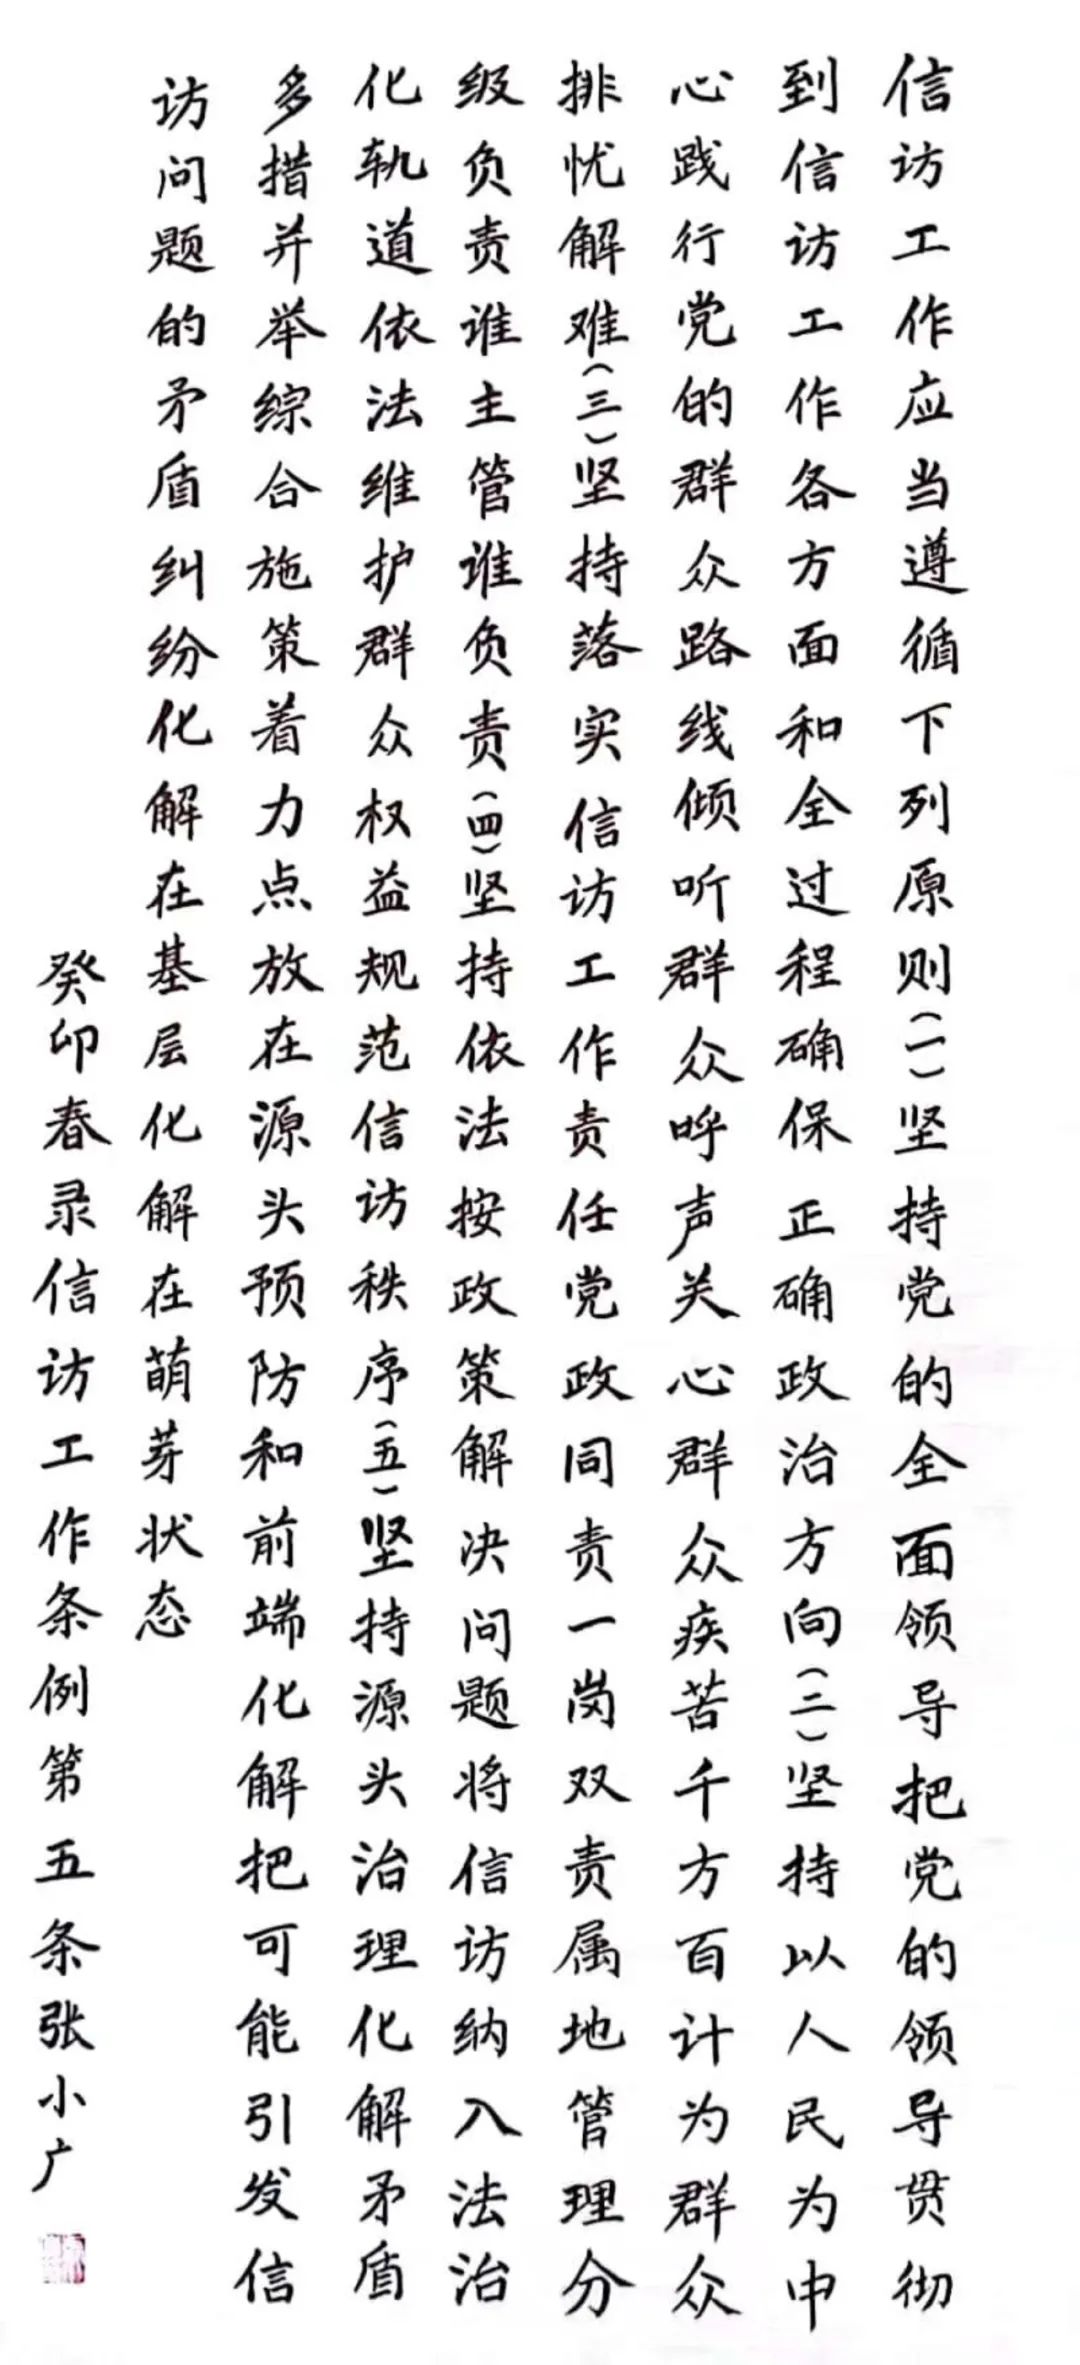 信访工作应当遵循下列原则(一)坚持党的全面领导把党的领导贯彻
到信访工作各方面和全过程确保正确政治方向(二)坚持以人民为中
心践行党的群众路线倾听群众呼声关心群众疾苦千方百计为群众
排忧解难(三)坚持落实信访工作责任党政同责一岗双责属地管理分
级负责谁主管谁负责(四)坚持依法按政策解决问题将信访纳入法治
化轨道依法维护群众权益规范信访秩序(五)坚持源头治理化解矛盾
多措并举综合施策着力点放在源头预防和前端化解把可能引发信
访问题的矛盾纠纷化解在基层化解在萌芽状态
癸卯春录信访工作条例第五条张小广